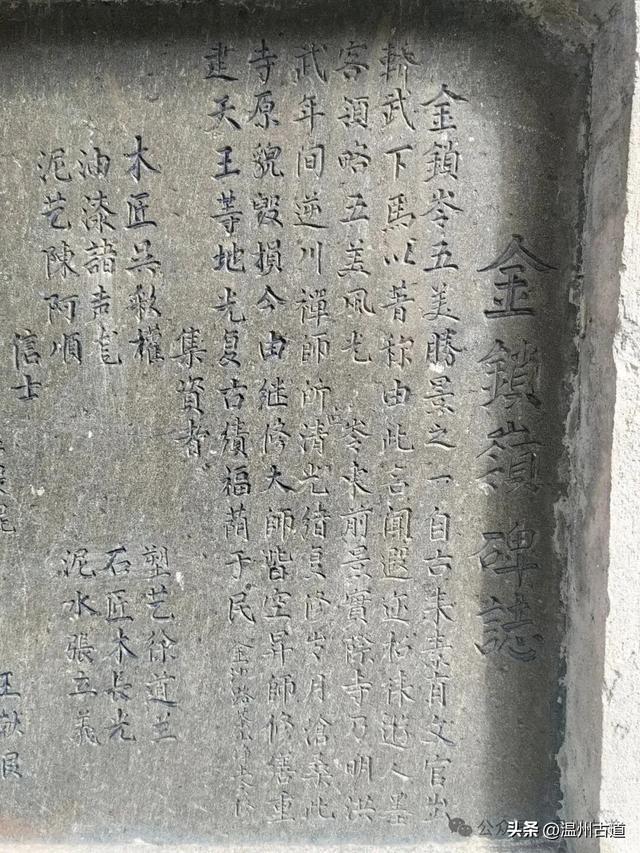 金鎖嶺碑誌
金鎖岺五美勝景之一自古来素有文官出
轎武下馬以昔称由此言闻遐迩招徕游人墨
客領略五美風光 岺東前景實際寺乃明洪
武年间逆川禪師所清光绪复修岁月滄桑此
寺原貌毁損今由继修大師諧空昇師修繕重
建天王等地光复古绩福荫于民
集資者
木匠吴 權
塑艺徐道兰
油漆諸声
石匠木長光
泥艺陳阿順
泥水張立義
信士
头条 @温州古道